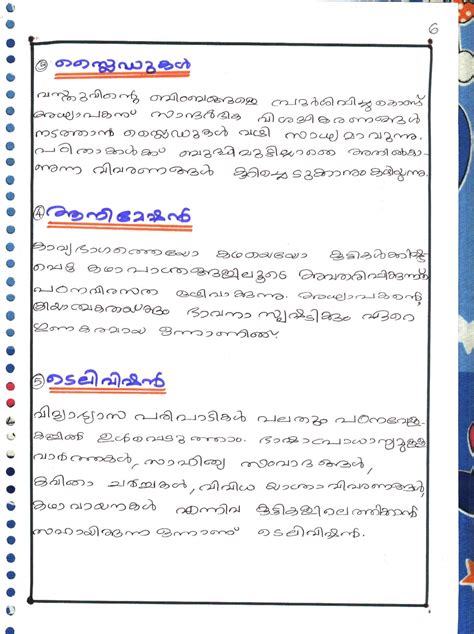 6
③ സ്ലൈഡുകൾ
വസ്തുവിന്റെ ബിംബങ്ങളെ കൊണ്ട്
അധ്യാപകന് സാന്ദർഭിക വിശദീകരണങ്ങൾ
നടത്താൻ സ്ലൈഡുകൾ വഴി സാധ്യമാവുന്നു.
പഠിതാക്കൾക്ക് ബുദ്ധിമുട്ടില്ലാതെ
വിവരണങ്ങൾ കുറിച്ചെടുക്കാനും കഴിയുന്നു.
④ ആനിമേഷൻ
കാവ്യഭാഗത്തെയോ കഥയെയോ കുട്ടികൾക്കിഷ്ട
പ്പെട്ട കഥാപാത്രങ്ങളിലൂടെ അവതരിപ്പിക്കുന്നത്
പഠനവിരസത ഒഴിവാക്കുന്നു. അധ്യാപകന്റെ
ക്രിയാത്മകതയ്ക്കും ഭാവനാ സൃഷ്ടിക്കും ഏറെ
ഗുണകരമായ ഒന്നാണിത്.
⑤ ടെലിവിഷൻ
വിദ്യാഭ്യാസ പരിപാടികൾ പലതും പഠനവേള-
കളിൽ ഉൾപ്പെടുത്താം. ഭാഷാപ്രാധാന്യമുള്ള
വാർത്തകൾ, സാഹിത്യ സംവാദങ്ങൾ,
കവിതാ ചർച്ചകൾ, വിവിധ യാത്രാവിവരണങ്ങൾ,
കഥാവായനകൾ എന്നിവ കുട്ടികളിലെത്തിക്കാൻ
സഹായിക്കുന്ന ഒന്നാണ് ടെലിവിഷൻ.